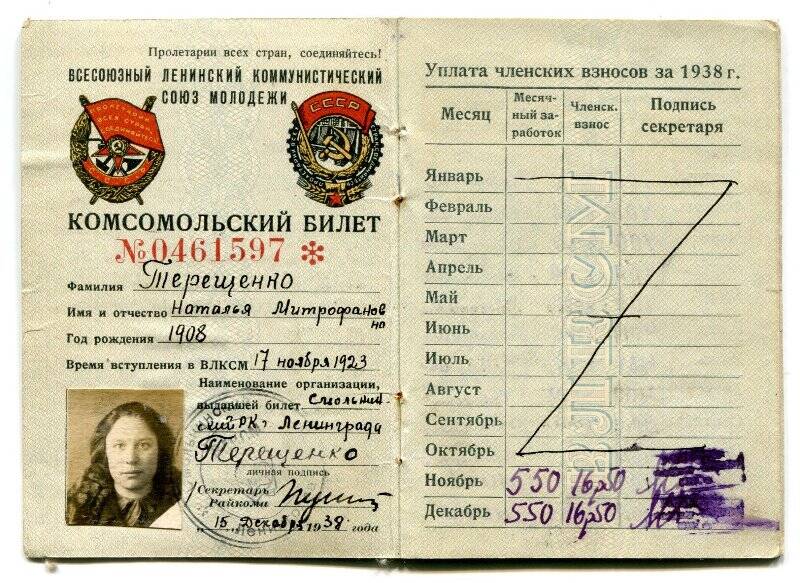 Пролетарии всех стран, соединяйтесь!
ВСЕСОЮЗНЫЙ ЛЕНИНСКИЙ КОММУНИСТИЧЕСКИЙ
СОЮЗ МОЛОДЕЖИ
ПРОЛЕТАРИИ
ВСЕХ СТРАН
СОЕДИНЯЙТЕСЬ
СССР
КОМСОМОЛЬСКИЙ БИЛЕТ
№0461597 *
Фамилия Терещенко
Имя и отчество Наталья Митрофанов
на
Год рождения 1908
Время вступления в ВЛКСМ 17 ноября 1923
Наименование организации,
выдавшей билет Смольнин-
ский РК г Ленинграда
Терещенко
личная подпись
Секретарь
Райкома
"15" Декабря 1938 года
Уплата членских взносов за 1938 г.
Месяц Месяч- ный за- работок Членск. взнос Подпись секретаря
ВЛКСМ
Январь
Февраль
Март
Апрель
Май
Июнь
Июль
Август
Сентябрь
Октябрь
Ноябрь 550 16р50
Декабрь 550 16р50